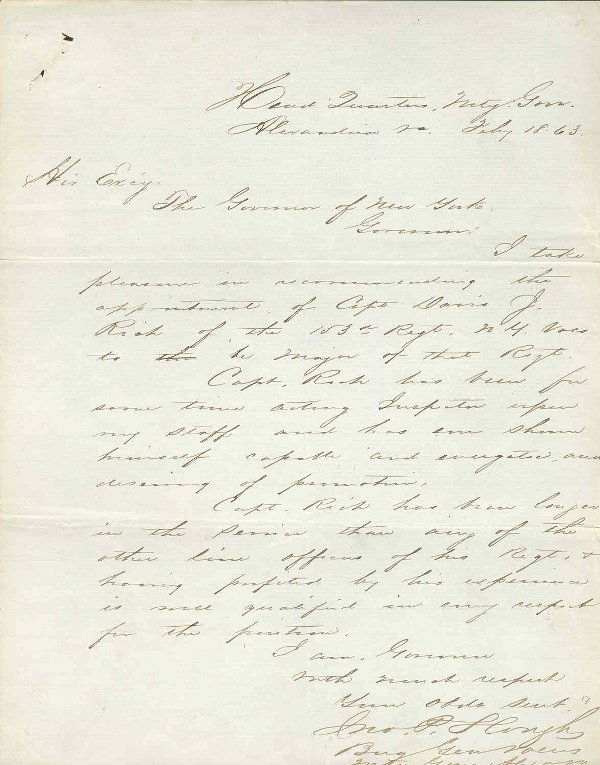 Head Quarters, Mity. Gov.
Alexandria Va. Feby 18.63.
His Excy.
The Governor of New York.
Governor:
I take
pleasure in recommending the
appointment of Capt Davis J.
Rich of the 153rd Regt. N Y Vols
to be Major of that Regt.
Capt. Rich has been for
some time acting Inspector upon
my staff and has ever shown
himself capable and energetic, and
deserving of promotion.
Capt. Rich has been longer
in the service than any of the
other line officers of his Regt, &
having profited by his experience
is well qualified in every respect
for the position.
I am, Governor
With much respect
Your Obdt Servt.
Jno. P. Slough
Brig Gen Vols